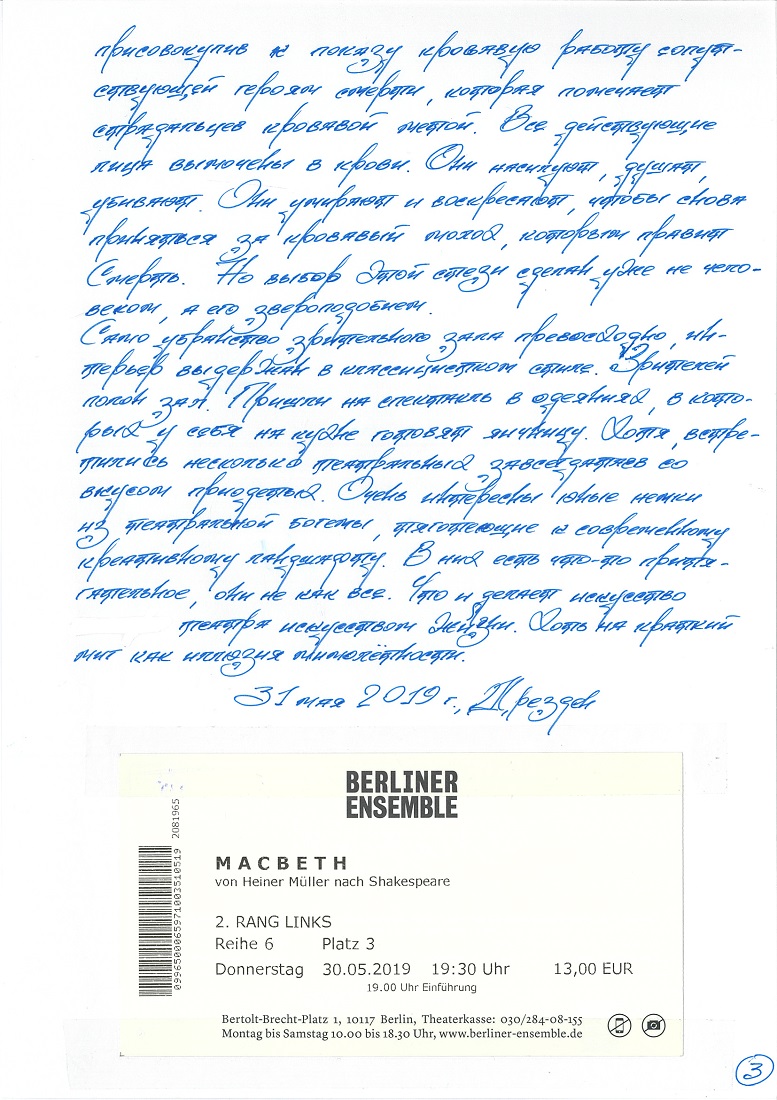 присовокупив к показу кровавую работу сопут-
ствующей героям смерти, которая помечает
страдальцев кровавой метой. Все действующие
лица вымочены в крови. Они насилуют, душат,
убивают. Они умирают и воскресают, чтобы снова
приняться за кровавый поход, которым правит
Смерть. Но выбор этой стези сделан уже не чело-
веком, а его звероподобием.
Само убранство зрительного зала превосходно, ин-
терьер выдержан в классицистком стиле. Зрителей
полон зал. Пришли на спектакль в одеяниях, в кото-
рых у себя на кухне готовят яичницу. Хотя, встре-
тились несколько театральных завсегдатаев со
вкусом приодетых. Очень интересны юные немки
из театральной богемы, тяготеющие к современному
креативному ландшафту. В них есть что-то притя-
гательное, они не как все. Что и делает искусство
театра искусством жизни. Хоть на краткий
миг как иллюзия мимолётности.
31 мая 2019 г., Дрезден
BERLINER
ENSEMBLE
2081965
0996500065971003510519
MACBETH
von Heiner Müller nach Shakespeare
2. RANG LINKS
Reihe 6 Platz 3
Donnerstag 30.05.2019 19:30 Uhr 13,00 EUR
19.00 Uhr Einführung
Bertolt-Brecht-Platz 1, 10117 Berlin, Theaterkasse: 030/284-08-155
Montag bis Samstag 10.00 bis 18.30 Uhr, www.berliner-ensemble.de
3